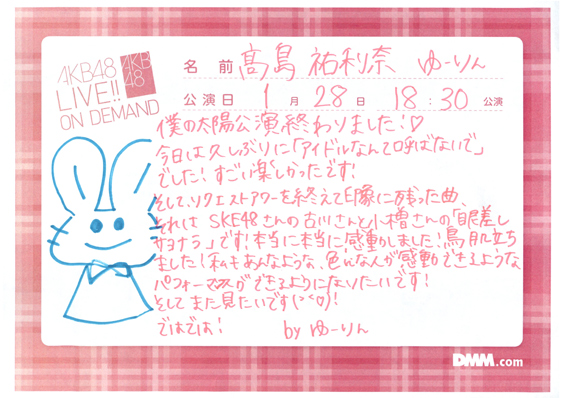 AKB48
LIVE!!
ON DEMAND
AKB
48
名前 高島 祐利奈 ゆーりん
公演日 1月28日 18:30公演
僕の太陽公演終わりました!♡
今日は久しぶりに「アイドルなんて呼ばないで」
でした!すごい楽しかったです!
そして、リクエストアワーを終えて印象に残った曲、
それは SKE48さんの古川さんと小木曽さんの「眼差し
サヨナラ」です!本当に本当に感動しました!鳥肌立ち
ました!私もあんなような、色んな人が感動できるような
パフォーマンスができるようになりたいです!
そしてまた見たいです(><♡)!
ではでは!
by ゆーりん
DMM.com